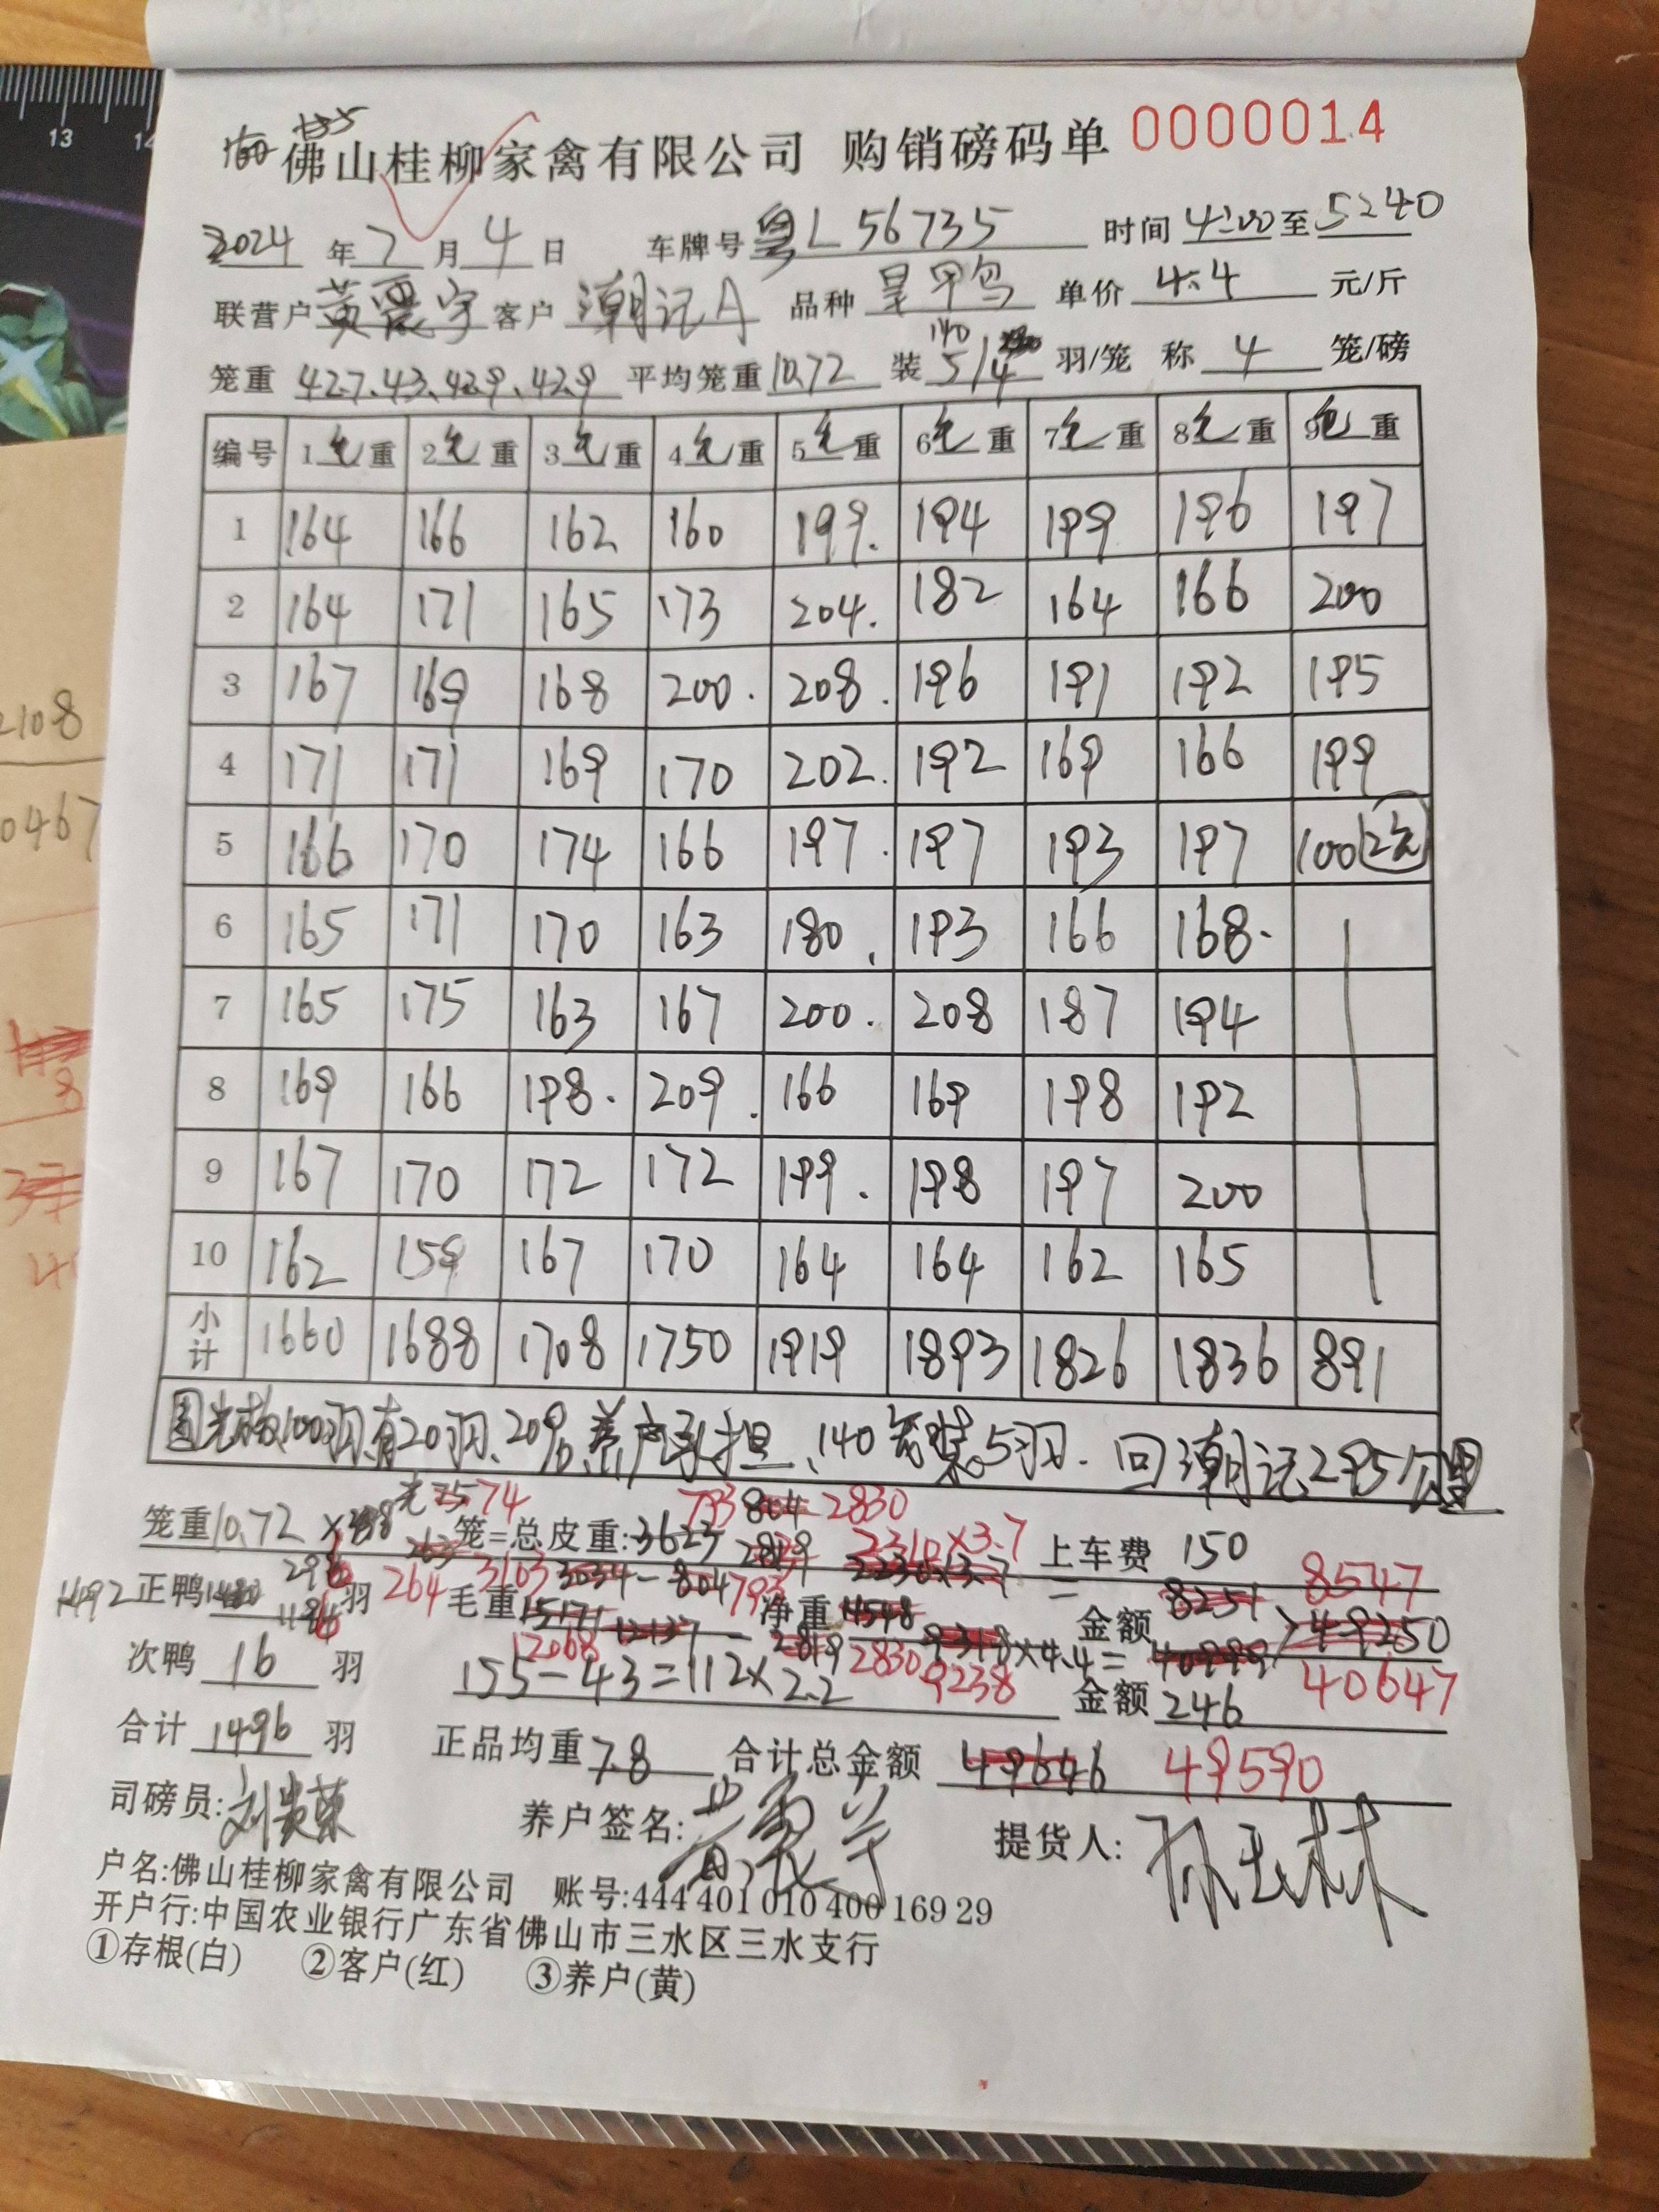 佛山桂柳家禽有限公司 购销磅码单 0000014
2024 年 7 月 4 日 车牌号 粤L 56735 时间 4:00 至 5:40
联营户 黄震宇 客户 潮记A 品种 单价 4.4 元/斤
140
笼重 42.7、43、42.9、42.9 平均笼重 10.72 装 5/4 羽/笼 称 4 笼/磅
编号 1毛重 2毛重 3毛重 4毛重 5毛重 6毛重 7毛重 8毛重 9毛重
1 164 166 162 160 199. 194 199 196 197
2 164 171 165 173 204. 182 164 166 200
3 167 169 168 200. 208. 196 191 192 195
4 171 171 169 170 202. 192 169 166 199
5 166 170 174 166 197. 197 193 197 100 (2笼)
6 165 171 170 163 180. 193 166 168.
7 165 175 163 167 200. 208 187 194
8 169 166 198. 209. 166 169 198 192
9 167 170 172 172 199. 198 197 200
10 162 159 167 170 164 164 162 165
小计 1660 1688 1708 1750 1919 1893 1826 1836 891
100羽有20羽、20%养户承担、140笼装5羽. 回潮记295公里
74 793 2830
笼重 10.72 × 笼=总皮重: 3623 2310×3.7 上车费 150
1492 正鸭 羽 264 3103 毛重 793 净重 = 金额 8547
次鸭 16 羽 12068 2830 9238 ×4.4= 49250
155-43=112×2.2 金额 246 40647
合计 1496 羽 正品均重 7.8 合计总金额 49646 49590
司磅员: 刘贵荣 养户签名: 黄震宇 提货人:
户名:佛山桂柳家禽有限公司 账号:444 401 010 400 169 29
开户行:中国农业银行广东省佛山市三水区三水支行
①存根(白) ②客户(红) ③养户(黄)
13
2108
0467